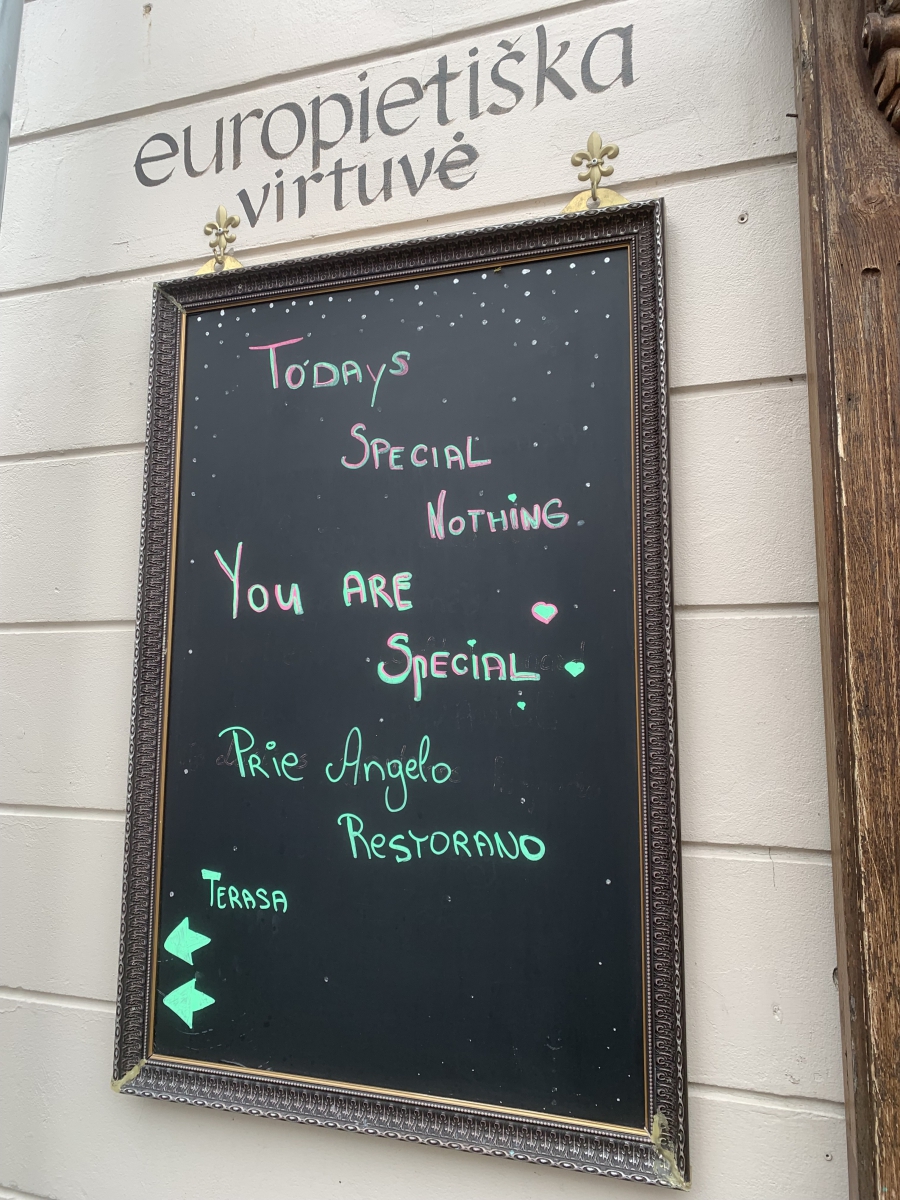 europietiška
virtuvė
TODAyS
SPECIAL
NOTHING
You ARE
SpECIAL
PRie Angelo
ReSTORANO
TERASA